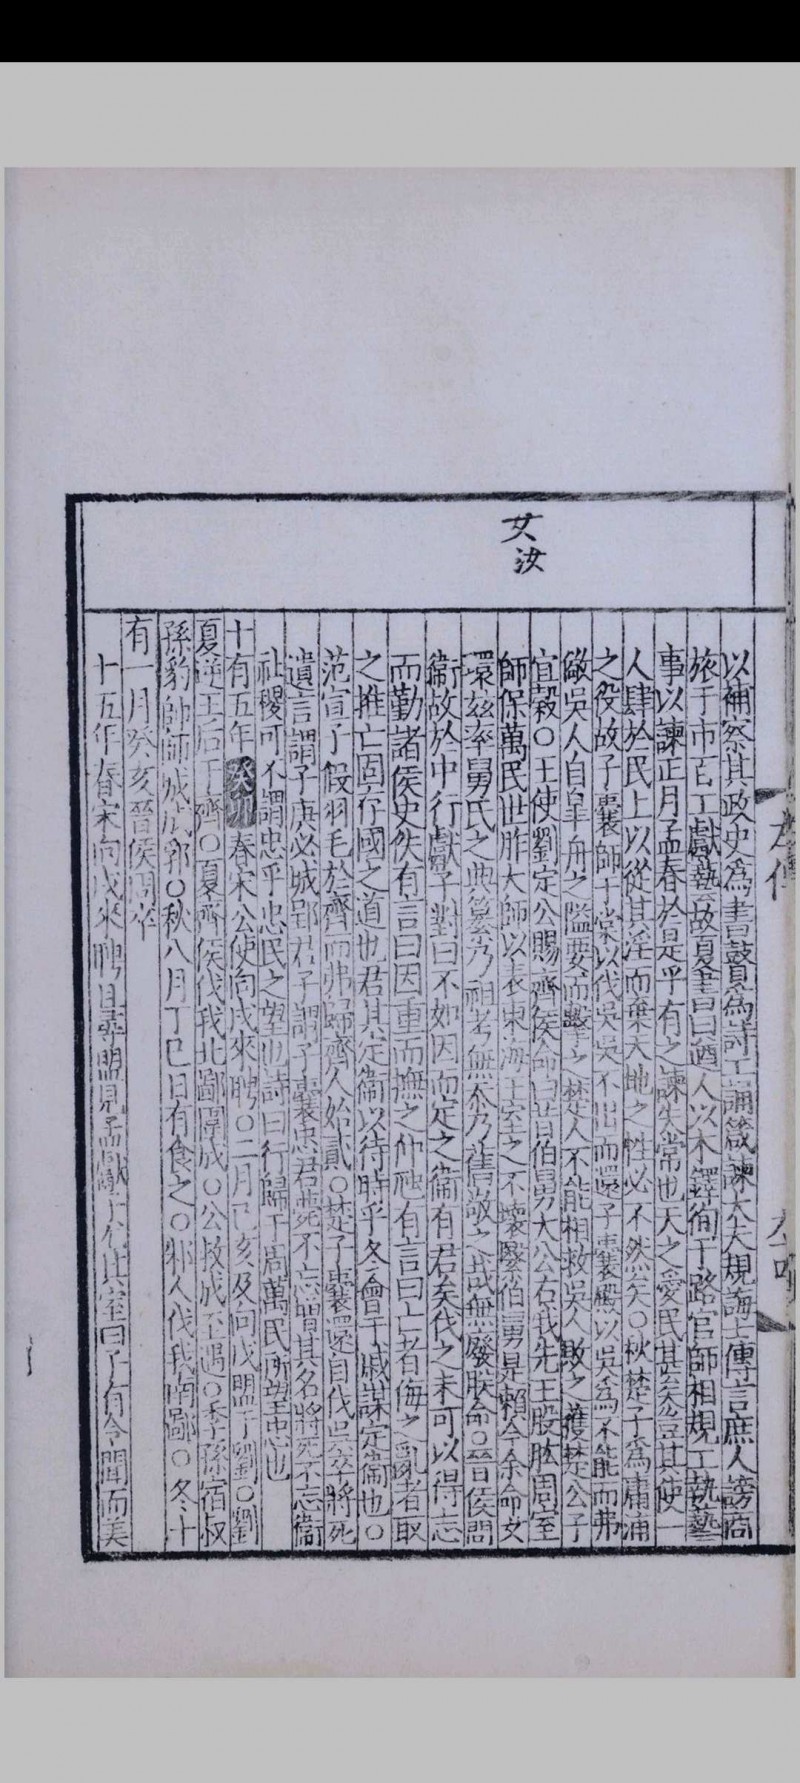 女汝
以補察其政史爲書瞽爲詩工誦箴諫大夫規誨士傳言庶人謗商
旅于市百工獻藝故夏書曰遒人以木鐸徇于路官師相規工執藝
事以諫正月孟春於是乎有之諫失常也天之愛民甚矣豈其使一
人肆於民上以從其淫而棄天地之性必不然矣○秋楚子爲庸浦
之役故子囊師于棠以伐吳吳不出而還子囊殿以吳爲不能而弗
儆吳人自皐舟之隘要而擊之楚人不能相救吳人敗之獲楚公子
宜穀○王使劉定公賜齊侯命曰昔伯舅大公右我先王股肱周室
師保萬民世胙大師以表東海王室之不壞繄伯舅是賴今余命女
環兹率舅氏之典纂乃祖考無忝乃舊敬之哉無廢朕命○晉侯問
衞故於中行獻子對曰不如因而定之衞有君矣伐之未可以得志
而勤諸侯史佚有言曰因重而撫之仲虺有言曰亡者侮之亂者取
之推亡固存國之道也君其定衞以待時乎冬會于戚謀定衞也○
范宣子假羽毛於齊而弗歸齊人始貳○楚子囊還自伐吳卒將死
遺言謂子庚必城郢君子謂子囊忠君薨不忘增其名將死不忘衞
社稷可不謂忠乎忠民之望也詩曰行歸于周萬民所望忠也
十有五年癸卯春宋公使向戌來聘○二月己亥及向戌盟于劉○劉
夏逆王后于齊○夏齊侯伐我北鄙圍成○公救成至遇○季孫宿叔
孫豹帥師城成郛○秋八月丁巳日有食之○邾人伐我南鄙○冬十
有一月癸亥晉侯周卒
十五年春宋向戌來聘且尋盟見孟獻子尤其室曰子有令聞而美
左傳